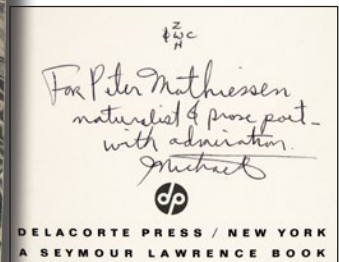 Z
WC
H
For Peter Mathiessen
naturalist & prose poet –
with admiration.
Michael
dp
DELACORTE PRESS / NEW YORK
A SEYMOUR LAWRENCE BOOK